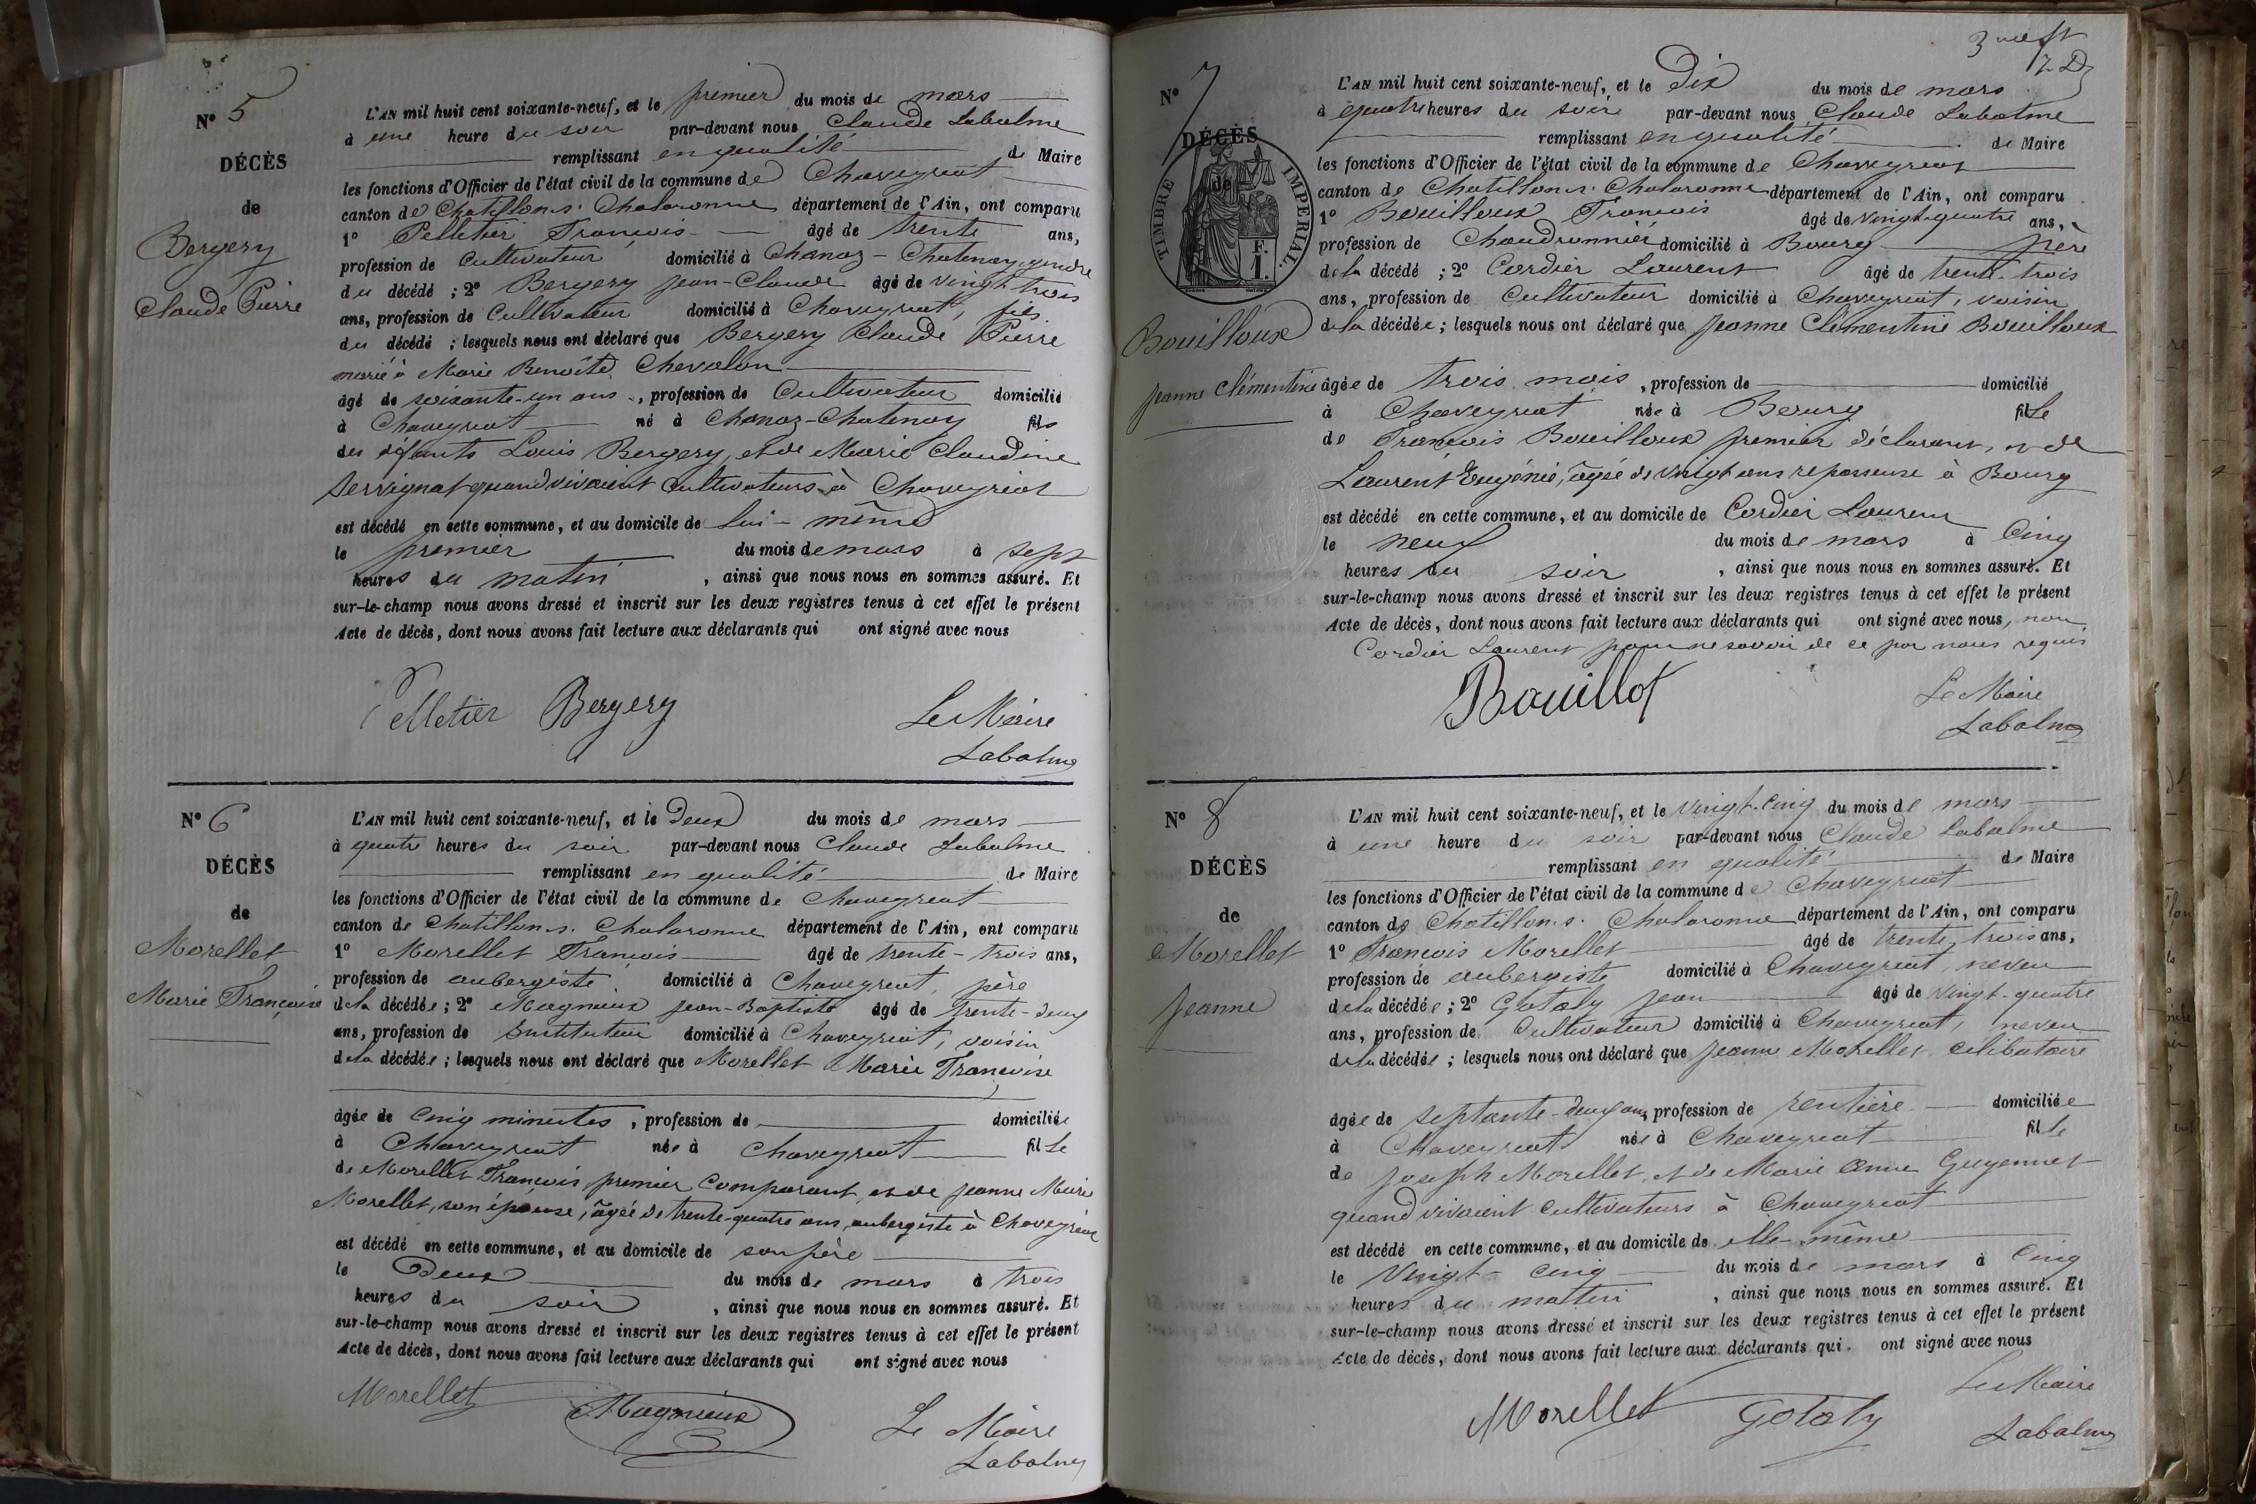 N° 5
DÉCÈS
de
Bergery
Claude Pierre
L'AN mil huit cent soixante-neuf, et le premier du mois de mars
à une heure du soir par-devant nous Claude Labalme
remplissant en qualité de Maire
les fonctions d'Officier de l'état civil de la commune de Chaveyriat
canton de Chatillon s. Chalaronne département de l'Ain, ont comparu
1° Pelletier François âgé de trente ans,
profession de cultivateur domicilié à Chanoz-Chatenay, gendre
du décédé ; 2° Bergery Jean-Claude âgé de vingt trois
ans, profession de cultivateur domicilié à Chaveyriat, fils
du décédé ; lesquels nous ont déclaré que Bergery Claude Pierre
marié à Marie Benoîte Chevalon
âgé de soixante-un ans, profession de Cultivateur domicilié
à Chaveyriat né à Chanoz-Chatenay fils
des défunts Louis Bergery, et de Marie Claudine
Servignat quand vivaient cultivateurs à Chaveyriat
est décédé en cette commune, et au domicile de lui-même
le premier du mois de mars à sept
heures du matin, ainsi que nous nous en sommes assuré. Et
sur-le-champ nous avons dressé et inscrit sur les deux registres tenus à cet effet le présent
Acte de décès, dont nous avons fait lecture aux déclarants qui ont signé avec nous
Pelletier Bergery Le Maire
Labalme
N° 6
DÉCÈS
de
Morellet
Marie Françoise
L'AN mil huit cent soixante-neuf, et le deux du mois de mars
à quatre heures du soir par-devant nous Claude Labalme
remplissant en qualité de Maire
les fonctions d'Officier de l'état civil de la commune de Chaveyriat
canton de Chatillon s. Chalaronne département de l'Ain, ont comparu
1° Morellet François âgé de trente-trois ans,
profession de aubergiste domicilié à Chaveyriat, père
de la décédée ; 2° Magnieux Jean-Baptiste âgé de trente-deux
ans, profession de Instituteur domicilié à Chaveyriat, voisin
de la décédée ; lesquels nous ont déclaré que Morellet Marie Françoise
âgée de cinq minutes, profession de domiciliée
à Chaveyriat née à Chaveyriat fille
de Morellet François, premier comparant, et de Jeanne Marie
Morellet, son épouse, âgée de trente-quatre ans, aubergiste à Chaveyriat
est décédé en cette commune, et au domicile de son père
le Deux du mois de mars à trois
heures du soir, ainsi que nous nous en sommes assuré. Et
sur-le-champ nous avons dressé et inscrit sur les deux registres tenus à cet effet le présent
Acte de décès, dont nous avons fait lecture aux déclarants qui ont signé avec nous
Morellet Magnieux Le Maire
Labalme
N° 7
DÉCÈS
de
TIMBRE IMPERIAL
1 F.
Bouilloux
Jeanne Clémentine
L'AN mil huit cent soixante-neuf, et le Dix du mois de mars
à quatre heures du soir par-devant nous Claude Labalme
remplissant en qualité de Maire
les fonctions d'Officier de l'état civil de la commune de Chaveyriat
canton de Chatillon s. Chalaronne département de l'Ain, ont comparu
1° Bouilloux François âgé de vingt-quatre ans,
profession de Chaudronnier domicilié à Bourg père
de la décédé ; 2° Cordier Laurent âgé de trente-trois
ans, profession de Cultivateur domicilié à Chaveyriat, voisin
de la décédée ; lesquels nous ont déclaré que Jeanne Clémentine Bouilloux
âgée de trois mois, profession de domicilié
à Chaveyriat née à Bourg fille
de François Bouilloux premier déclarant, et de
Laurent Eugénie, âgée de vingt ans repasseuse à Bourg
est décédé en cette commune, et au domicile de Cordier Laurent
le neuf du mois de mars à Cinq
heures du soir, ainsi que nous nous en sommes assuré. Et
sur-le-champ nous avons dressé et inscrit sur les deux registres tenus à cet effet le présent
Acte de décès, dont nous avons fait lecture aux déclarants qui ont signé avec nous, non
Cordier Laurent pour ne savoir de ce par nous requis
Bouillot Le Maire
Labalme
N° 8
DÉCÈS
de
Morellet
Jeanne
L'AN mil huit cent soixante-neuf, et le vingt-cinq du mois de mars
à une heure du soir par-devant nous Claude Labalme
remplissant en qualité de Maire
les fonctions d'Officier de l'état civil de la commune de Chaveyriat
canton de Chatillon s. Chalaronne département de l'Ain, ont comparu
1° François Morellet âgé de trente trois ans,
profession de aubergiste domicilié à Chaveyriat, neveu
de la décédée ; 2° Golaty Jean âgé de vingt-quatre
ans, profession de Cultivateur domicilié à Chaveyriat, neveu
de la décédée ; lesquels nous ont déclaré que Jeanne Morellet célibataire
âgée de septante-deux ans, profession de rentière domiciliée
à Chaveyriat née à Chaveyriat fille
de Joseph Morellet, et de Marie Anne Guyennet
quand vivaient cultivateurs à Chaveyriat
est décédé en cette commune, et au domicile de elle-même
le Vingt-cinq du mois de mars à Cinq
heures du matin, ainsi que nous nous en sommes assuré. Et
sur-le-champ nous avons dressé et inscrit sur les deux registres tenus à cet effet le présent
Acte de décès, dont nous avons fait lecture aux déclarants qui ont signé avec nous
Morellet Golaty Le Maire
Labalme